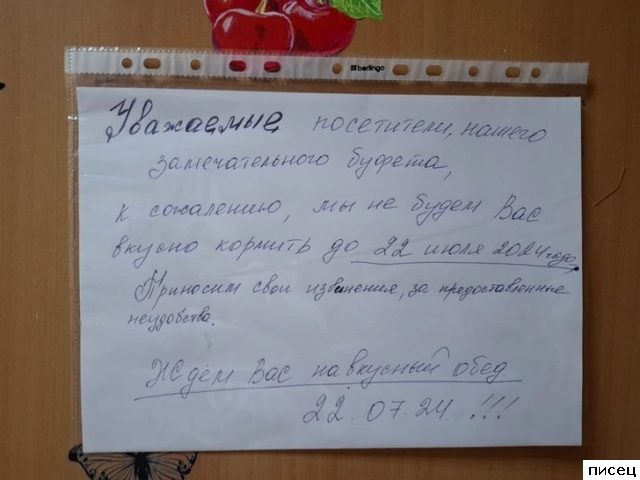 berlingo
Уважаемые посетители, нашего
замечательного буфета,
к сожалению, мы не будем Вас
вкусно кормить до 22 июля 2024 года
Приносим свои извинения, за предоставленные
неудобства.
Ждём Вас на вкусный обед
22.07.24 !!!
писец